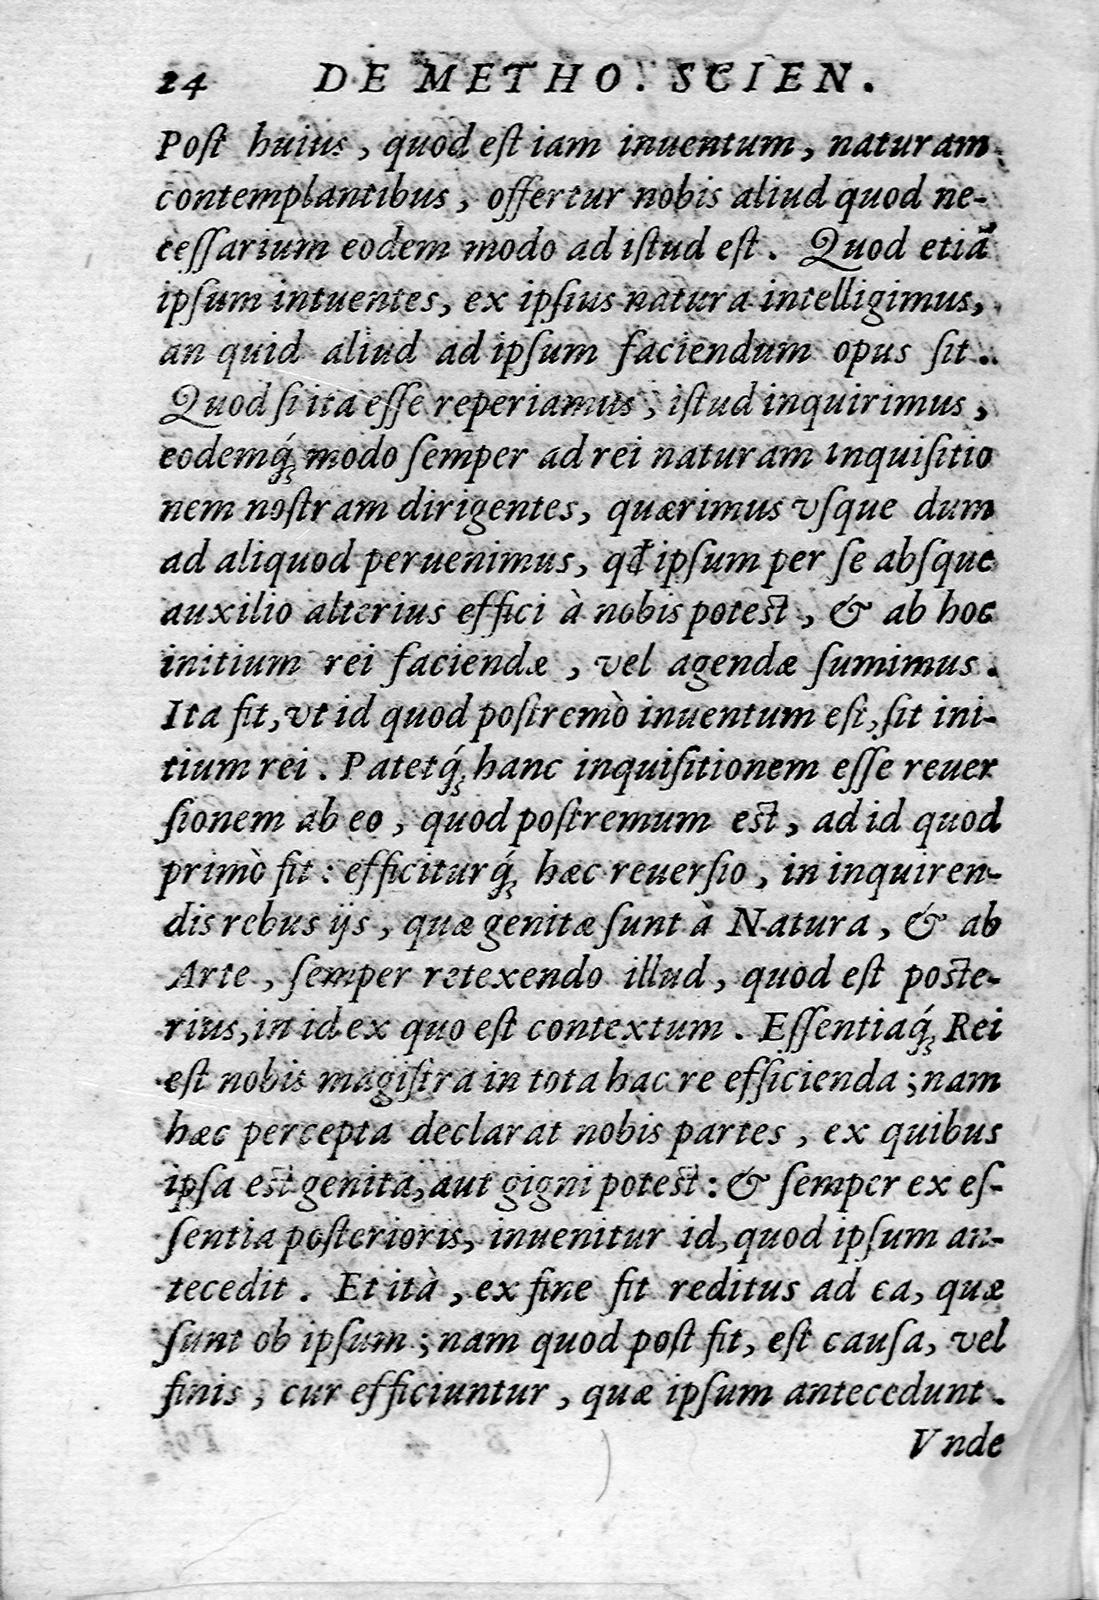 24 DE METHO. SCIEN.
Poſt huius, quod eſt iam inuentum, naturam
contemplantibus, offertur nobis aliud quod ne-
ceſſarium eodem modo ad iſtud eſt. Quod etiā
ipſum intuentes, ex ipſius natura intelligimus,
an quid aliud ad ipſum faciendum opus ſit.
Quod ſi ita eſſe reperiamus, iſtud inquirimus,
eodemq́; modo ſemper ad rei naturam inquiſitio
nem noſtram dirigentes, quærimus vſque dum
ad aliquod peruenimus, qđ ipſum per ſe abſque
auxilio alterius effici à nobis poteſt, & ab hoc
initium rei faciendæ, vel agendæ ſumimus.
Ita fit, vt id quod poſtremò inuentum eſt, ſit ini-
tium rei. Patetq́; hanc inquiſitionem eſſe reuer
ſionem ab eo, quod poſtremum eſt, ad id quod
primò fit: efficiturq́; hæc reuerſio, in inquiren-
dis rebus ijs, quæ genitæ ſunt à Natura, & ab
Arte, ſemper retexendo illud, quod eſt poſte-
rius, in id ex quo eſt contextum. Eſſentiaq́; Rei
eſt nobis magiſtra in tota hac re efficienda; nam
hæc percepta declarat nobis partes, ex quibus
ipſa eſt genita, aut gigni poteſt: & ſemper ex eſ-
ſentia poſterioris, inuenitur id, quod ipſum an-
tecedit. Et ità, ex fine fit reditus ad ea, quæ
ſunt ob ipſum; nam quod poſt fit, eſt cauſa, vel
finis, cur efficiuntur, quæ ipſum antecedunt.
Vnde